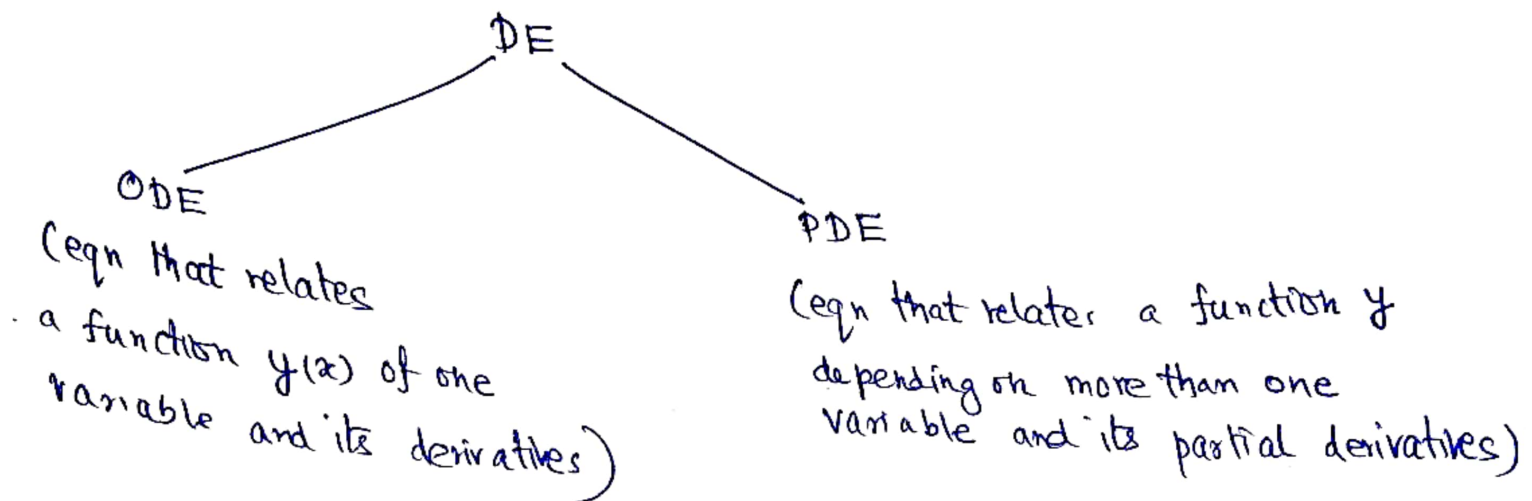 DE
ODE
(eqn that relates
a function y(x) of one
variable and its derivatives)
PDE
(eqn that relates a function y
depending on more than one
variable and its partial derivatives)